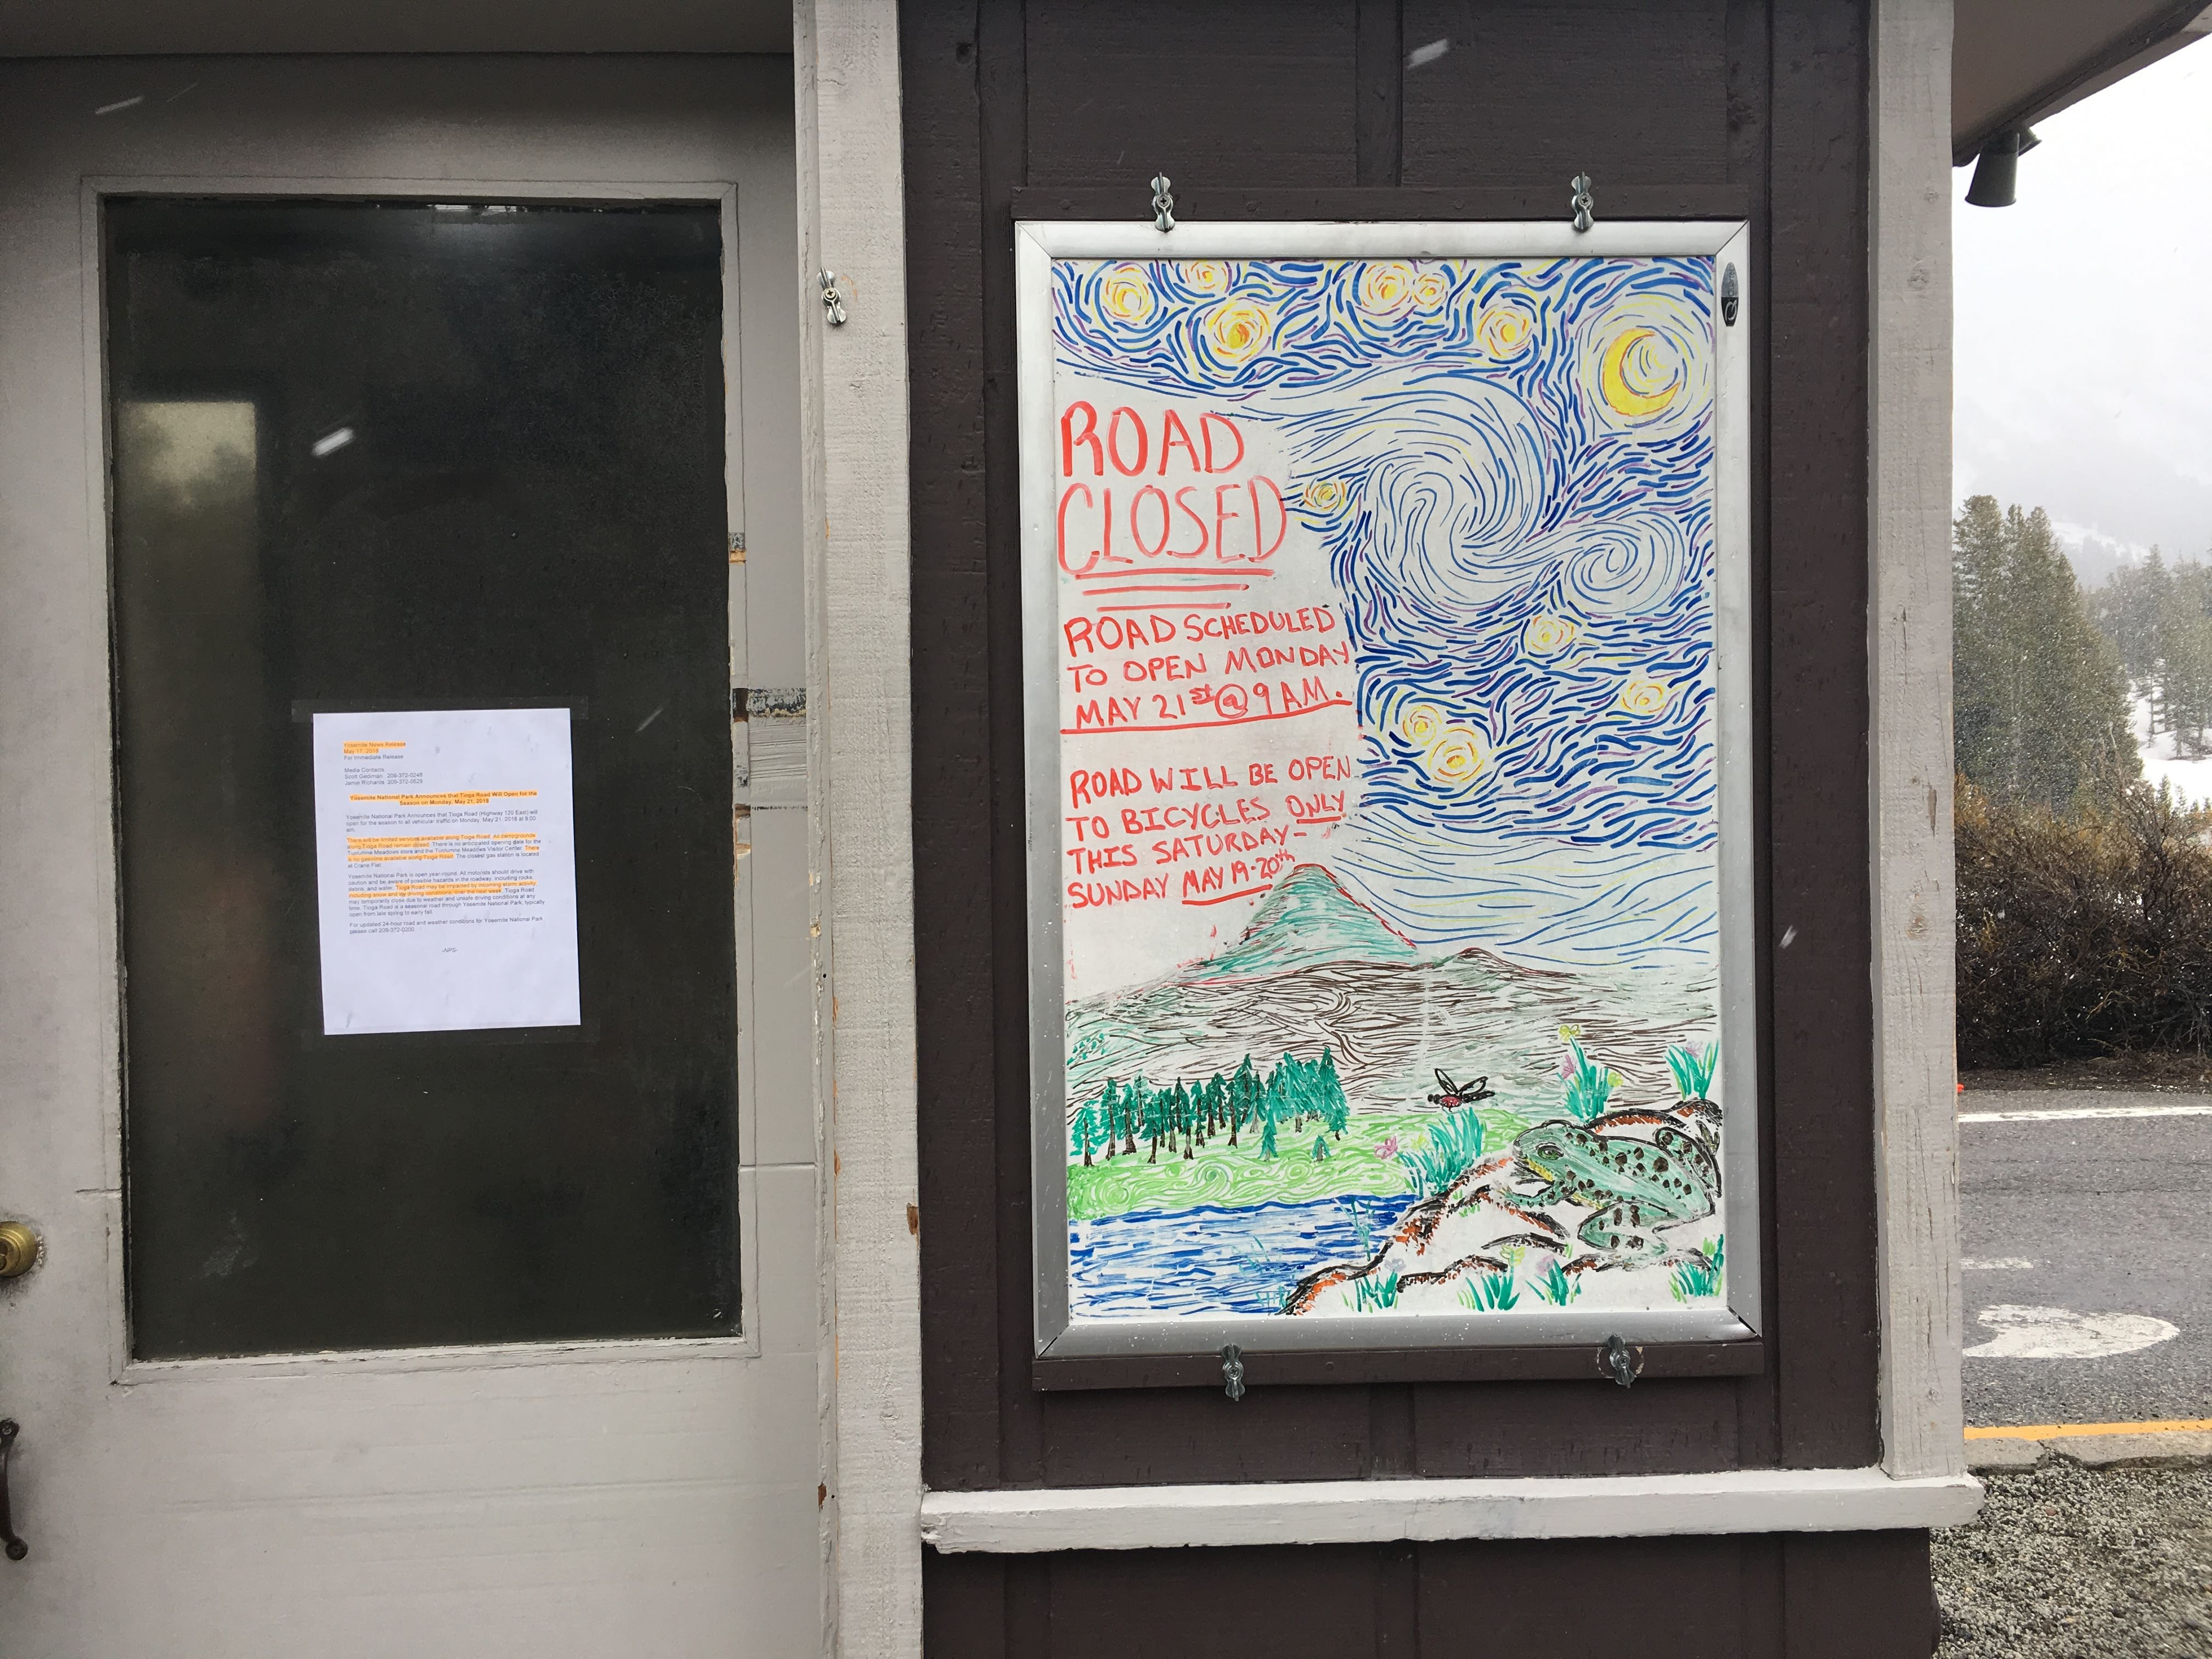 Yosemite News Release
May 17, 2018
For Immediate Release
Media Contacts:
Scott Gediman 209-372-0248
Jamie Richards 209-372-0529
Yosemite National Park Announces that Tioga Road Will Open for the
Season on Monday, May 21, 2018
Yosemite National Park Announces that Tioga Road (Highway 120 East) will
open for the season to all vehicular traffic on Monday, May 21, 2018 at 9:00
am.
There will be limited services available along Tioga Road. All campgrounds
along Tioga Road remain closed. There is no anticipated opening date for the
Tuolumne Meadows store and the Tuolumne Meadows Visitor Center. There
is no gasoline available along Tioga Road. The closest gas station is located
at Crane Flat.
Yosemite National Park is open year-round. All motorists should drive with
caution and be aware of possible hazards in the roadway, including rocks,
debris, and water. Tioga Road may be impacted by incoming storm activity
including snow and icy driving conditions over the next week. Tioga Road
may temporarily close due to weather and unsafe driving conditions at any
time. Tioga Road is a seasonal road through Yosemite National Park, typically
open from late spring to early fall.
For updated 24-hour road and weather conditions for Yosemite National Park
please call 209-372-0200.
-NPS-
ROAD
CLOSED
ROAD SCHEDULED
TO OPEN MONDAY
MAY 21st @ 9 AM.
ROAD WILL BE OPEN
TO BICYCLES ONLY
THIS SATURDAY-
SUNDAY MAY 19-20th